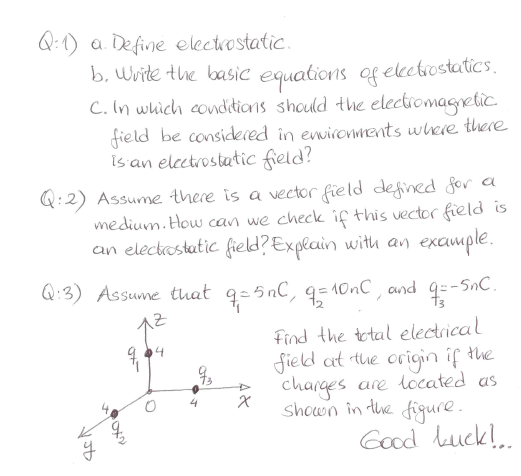 Q:1) a. Define electrostatic.
b. Write the basic equations of electrostatics.
C. In which conditions should the electromagnetic
field be considered in environments where there
is an electrostatic field?
Q:2) Assume there is a vector field defined for a
medium. How can we check if this vector field is
an electrostatic field? Explain with an example.
Q:3) Assume that q₁=5nC, q₂=10nC, and q₃=-5nC.
Z
q₁ 4
q₃
4 O 4 x
q₂
y
Find the total electrical
field at the origin if the
charges are located as
shown in the figure.
Good luck!..